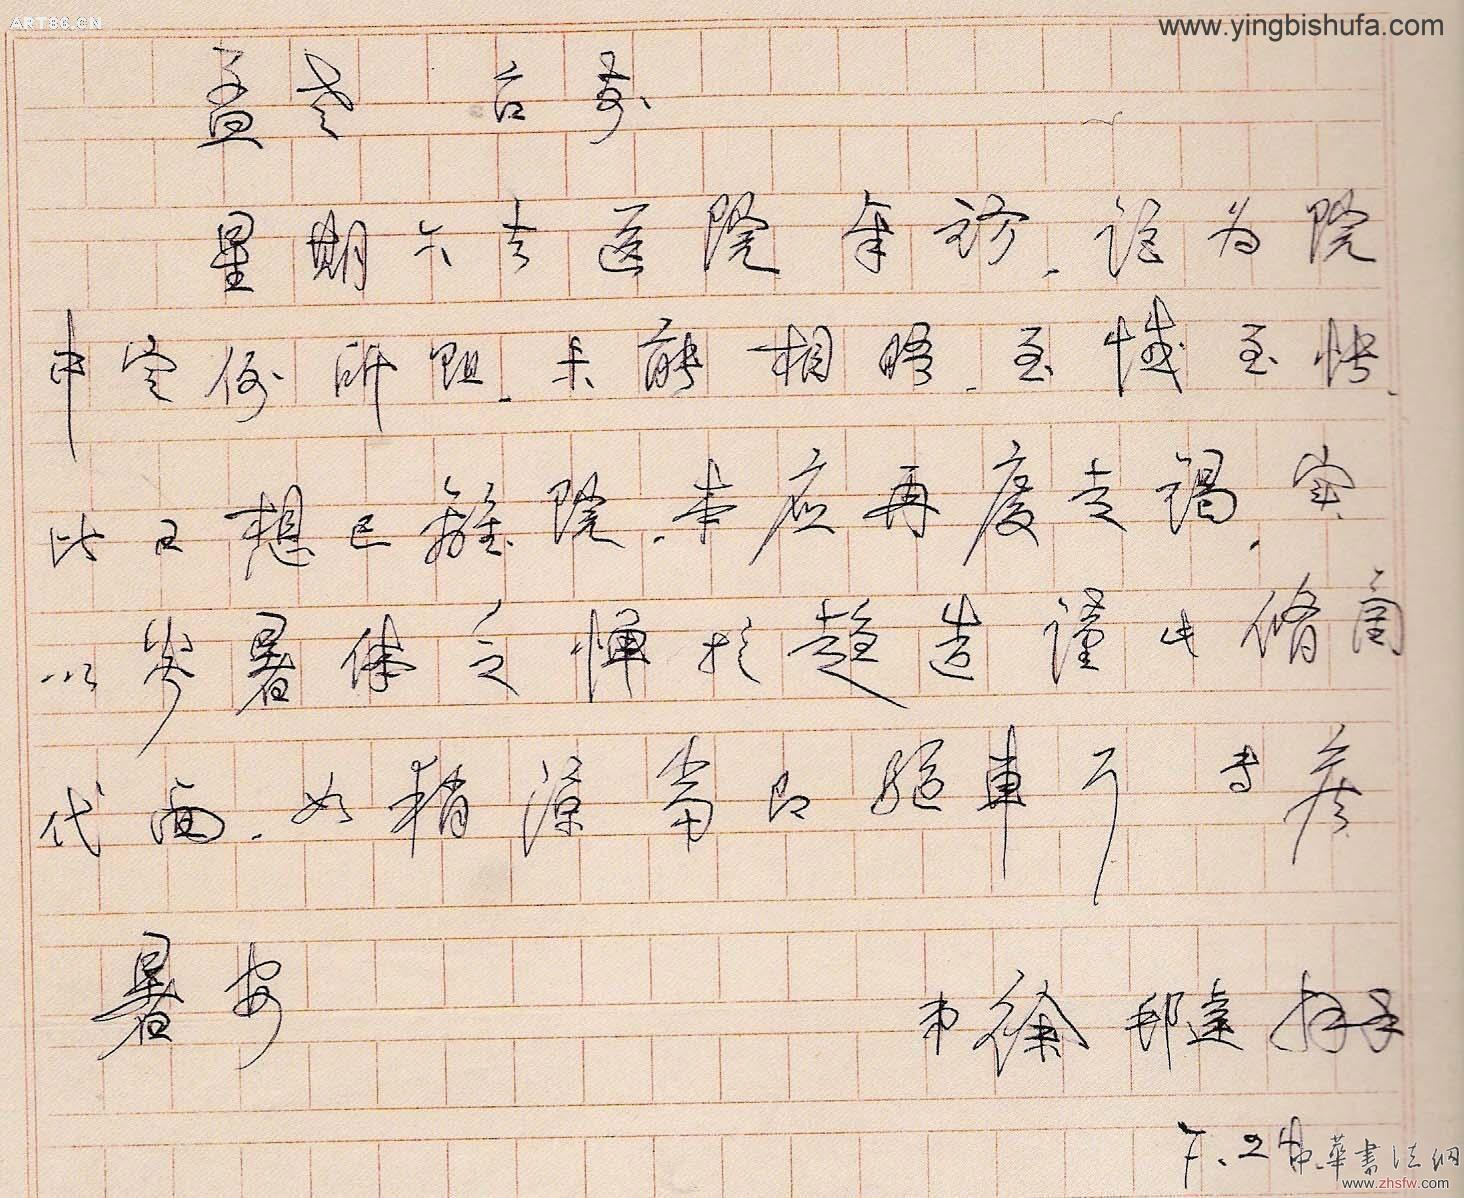 ART86.CN
www.yingbishufa.com
孟老 台 前
星期六去医院奉访，讵为院
中定例所阻，未能相晤，至憾至怅，
此日想已离院，本应再度走谒，实
以岁暑体乏惮于趋造谨此修笺
代面，如稍凉当即驱车耳 专候
暑安
弟徐邦达拜手
7.24
中华书法网
www.zhsfw.com